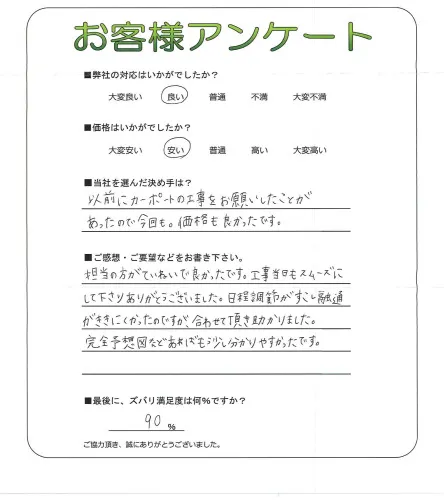 お客様アンケート
■弊社の対応はいかがでしたか？
大変良い 良い 普通 不満 大変不満
■価格はいかがでしたか？
大変安い 安い 普通 高い 大変高い
■当社を選んだ決め手は？
以前にカーポートの工事をお願いしたことが
あったので今回も。価格も良かったです。
■ご感想・ご要望などをお書き下さい。
担当の方がていねいで良かったです。工事当日もスムーズに
して下さりありがとうございました。日程調節がすこし融通
がききにくかったのですが、合わせて頂き助かりました。
完全予想図などあればもう少し分かりやすかったです。
■最後に、ズバリ満足度は何％ですか？
90 %
ご協力頂き、誠にありがとうございました。